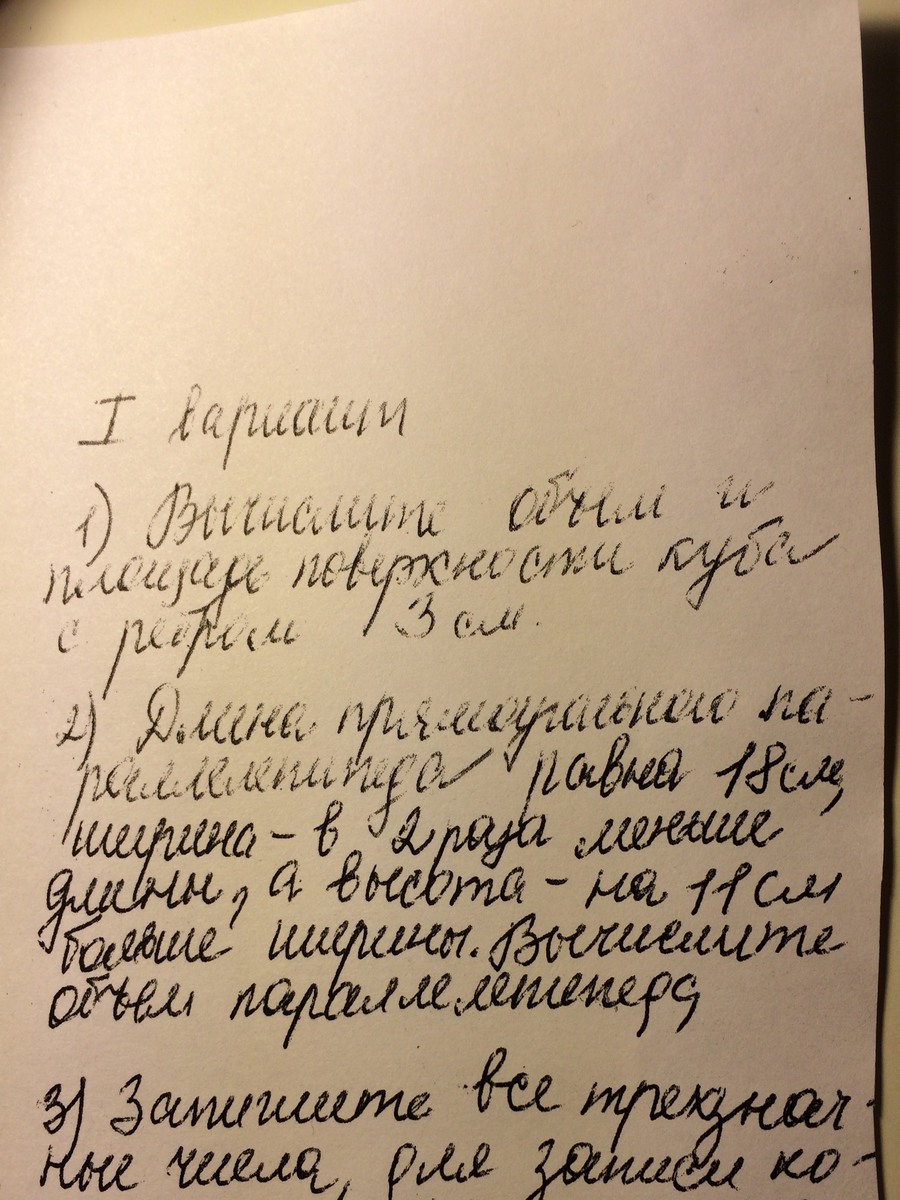 I вариант
1) Вычислите объем и
площадь поверхности куба
с ребром 3 см.
2) Длина прямоугольного па-
раллелепипеда равна 18 см,
ширина - в 2 раза меньше
длины, а высота - на 11 см
больше ширины. Вычислите
объем параллелепипеда
3) Запишите все трехзнач-
ные числа, для записи ко-